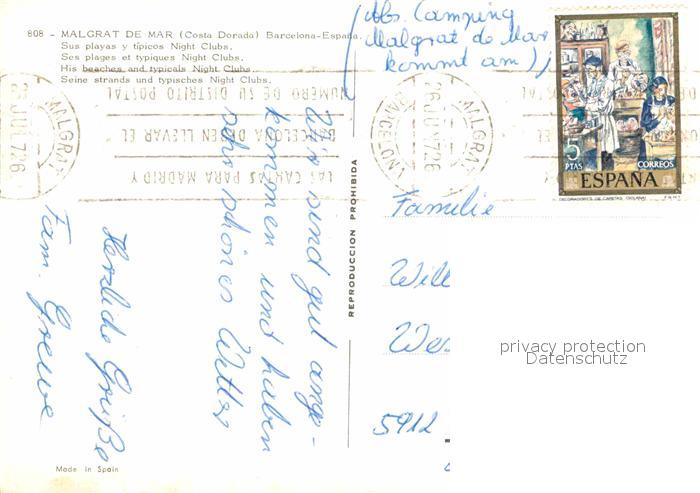 808 - MALGRAT DE MAR (Costa Dorada) Barcelona-España.
Sus playas y típicos Night Clubs.
Ses plages et typiques Night Clubs.
His beaches and typicals Night Clubs.
Seine strands und typisches Night Clubs.
Abs. Camping
Malgrat de Mar
kommt am)
5 PTAS
CORREOS
ESPAÑA
DECORADORES DE CARETAS (SOLANA)
F.N.M.T.
MALGRAT
BARCELONA
LAS CARTAS PARA MADRID Y
BARCELONA DEBEN LLEVAR EL
NUMERO DE SU DISTRITO POSTAL
MALGRAT
Wir sind gut ange-
kommen und haben
sehr schönes Wetter
Herzliche Grüße
Fam. Grewe
REPRODUCCION PROHIBIDA
Familie
Will
Wes
5912
privacy protection
Datenschutz
Made in Spain